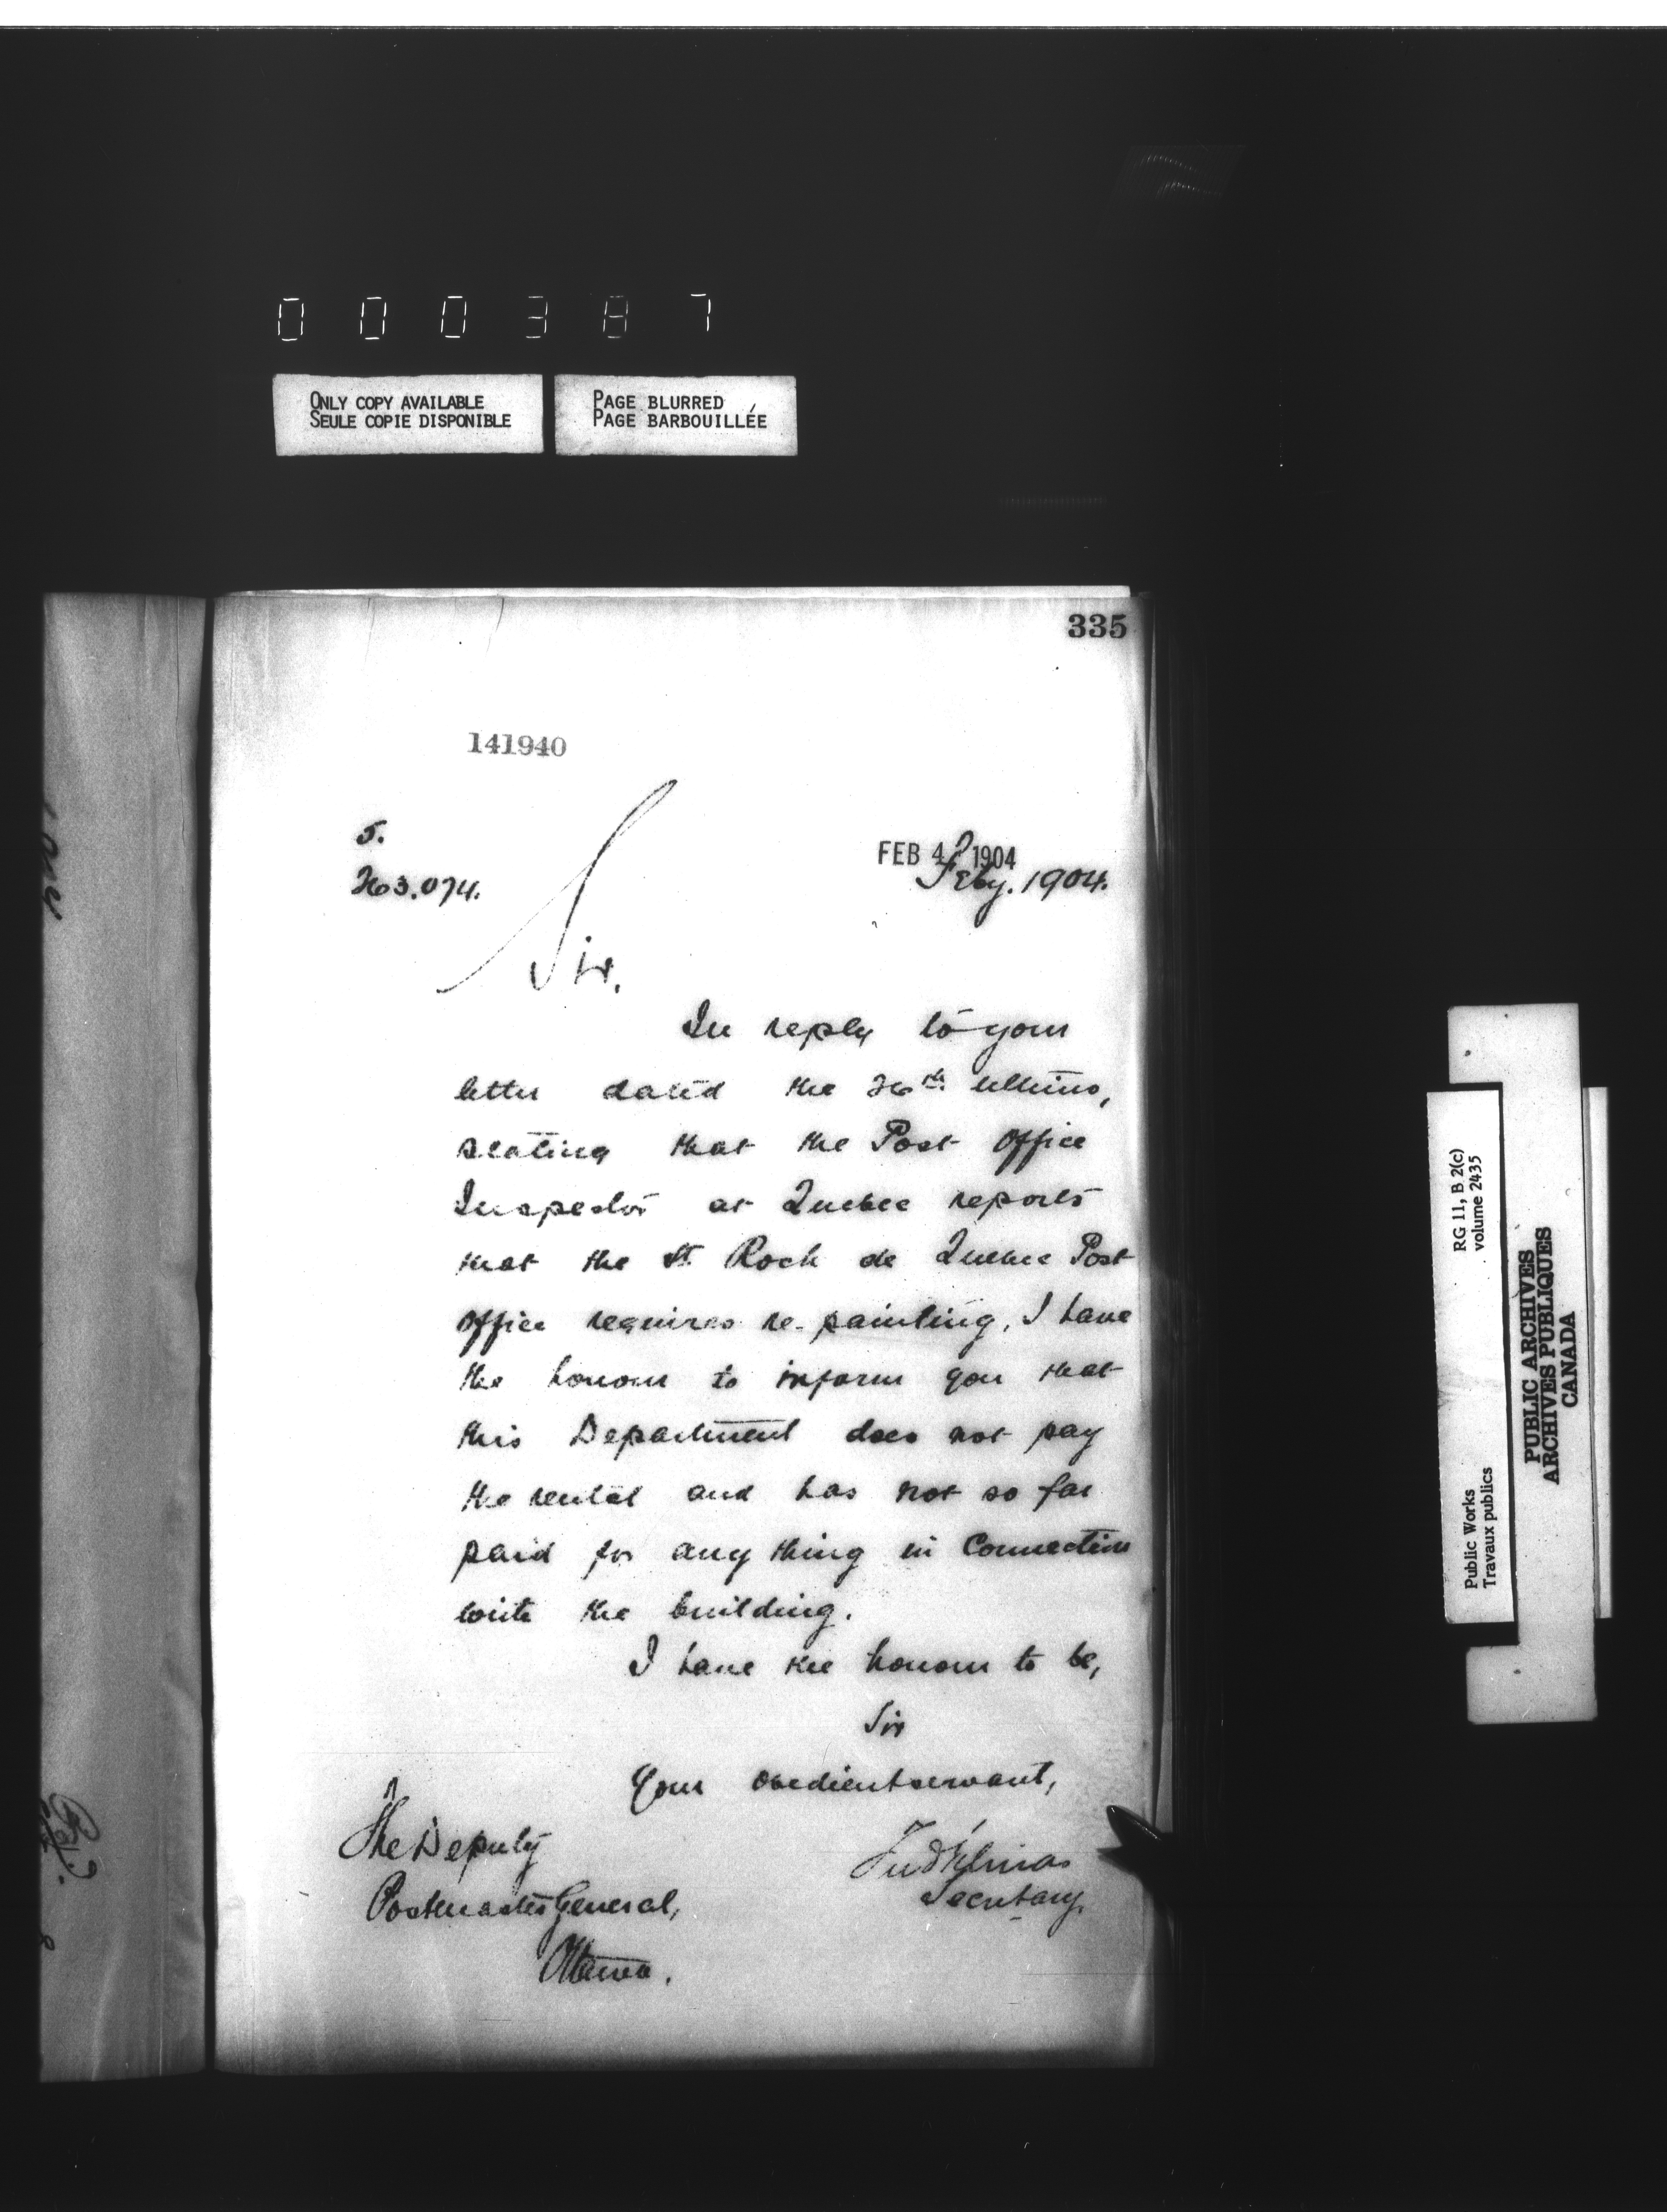 000387
ONLY COPY AVAILABLE
SEULE COPIE DISPONIBLE
PAGE BLURRED
PAGE BARBOUILLÉE
335
141940
5.
263.074.
FEB 4 1904
Feby. 1904.
Sir.
In reply to your
letter dated the 26th ultimo,
stating that the Post Office
Inspector at Quebec reports
that the St. Roch de Quebec Post
Office requires re-painting, I have
the honour to inform you that
this Department does not pay
the rental and has not so far
paid for any thing in connection
with the building.
I have the honour to be,
Sir
Your obedient servant,
The Deputy
Postmaster General,
Ottawa.
Fred Gélinas
Secretary.
RG 11, B 2(c)
volume 2435
Public Works
Travaux publics
PUBLIC ARCHIVES
ARCHIVES PUBLIQUES
CANADA